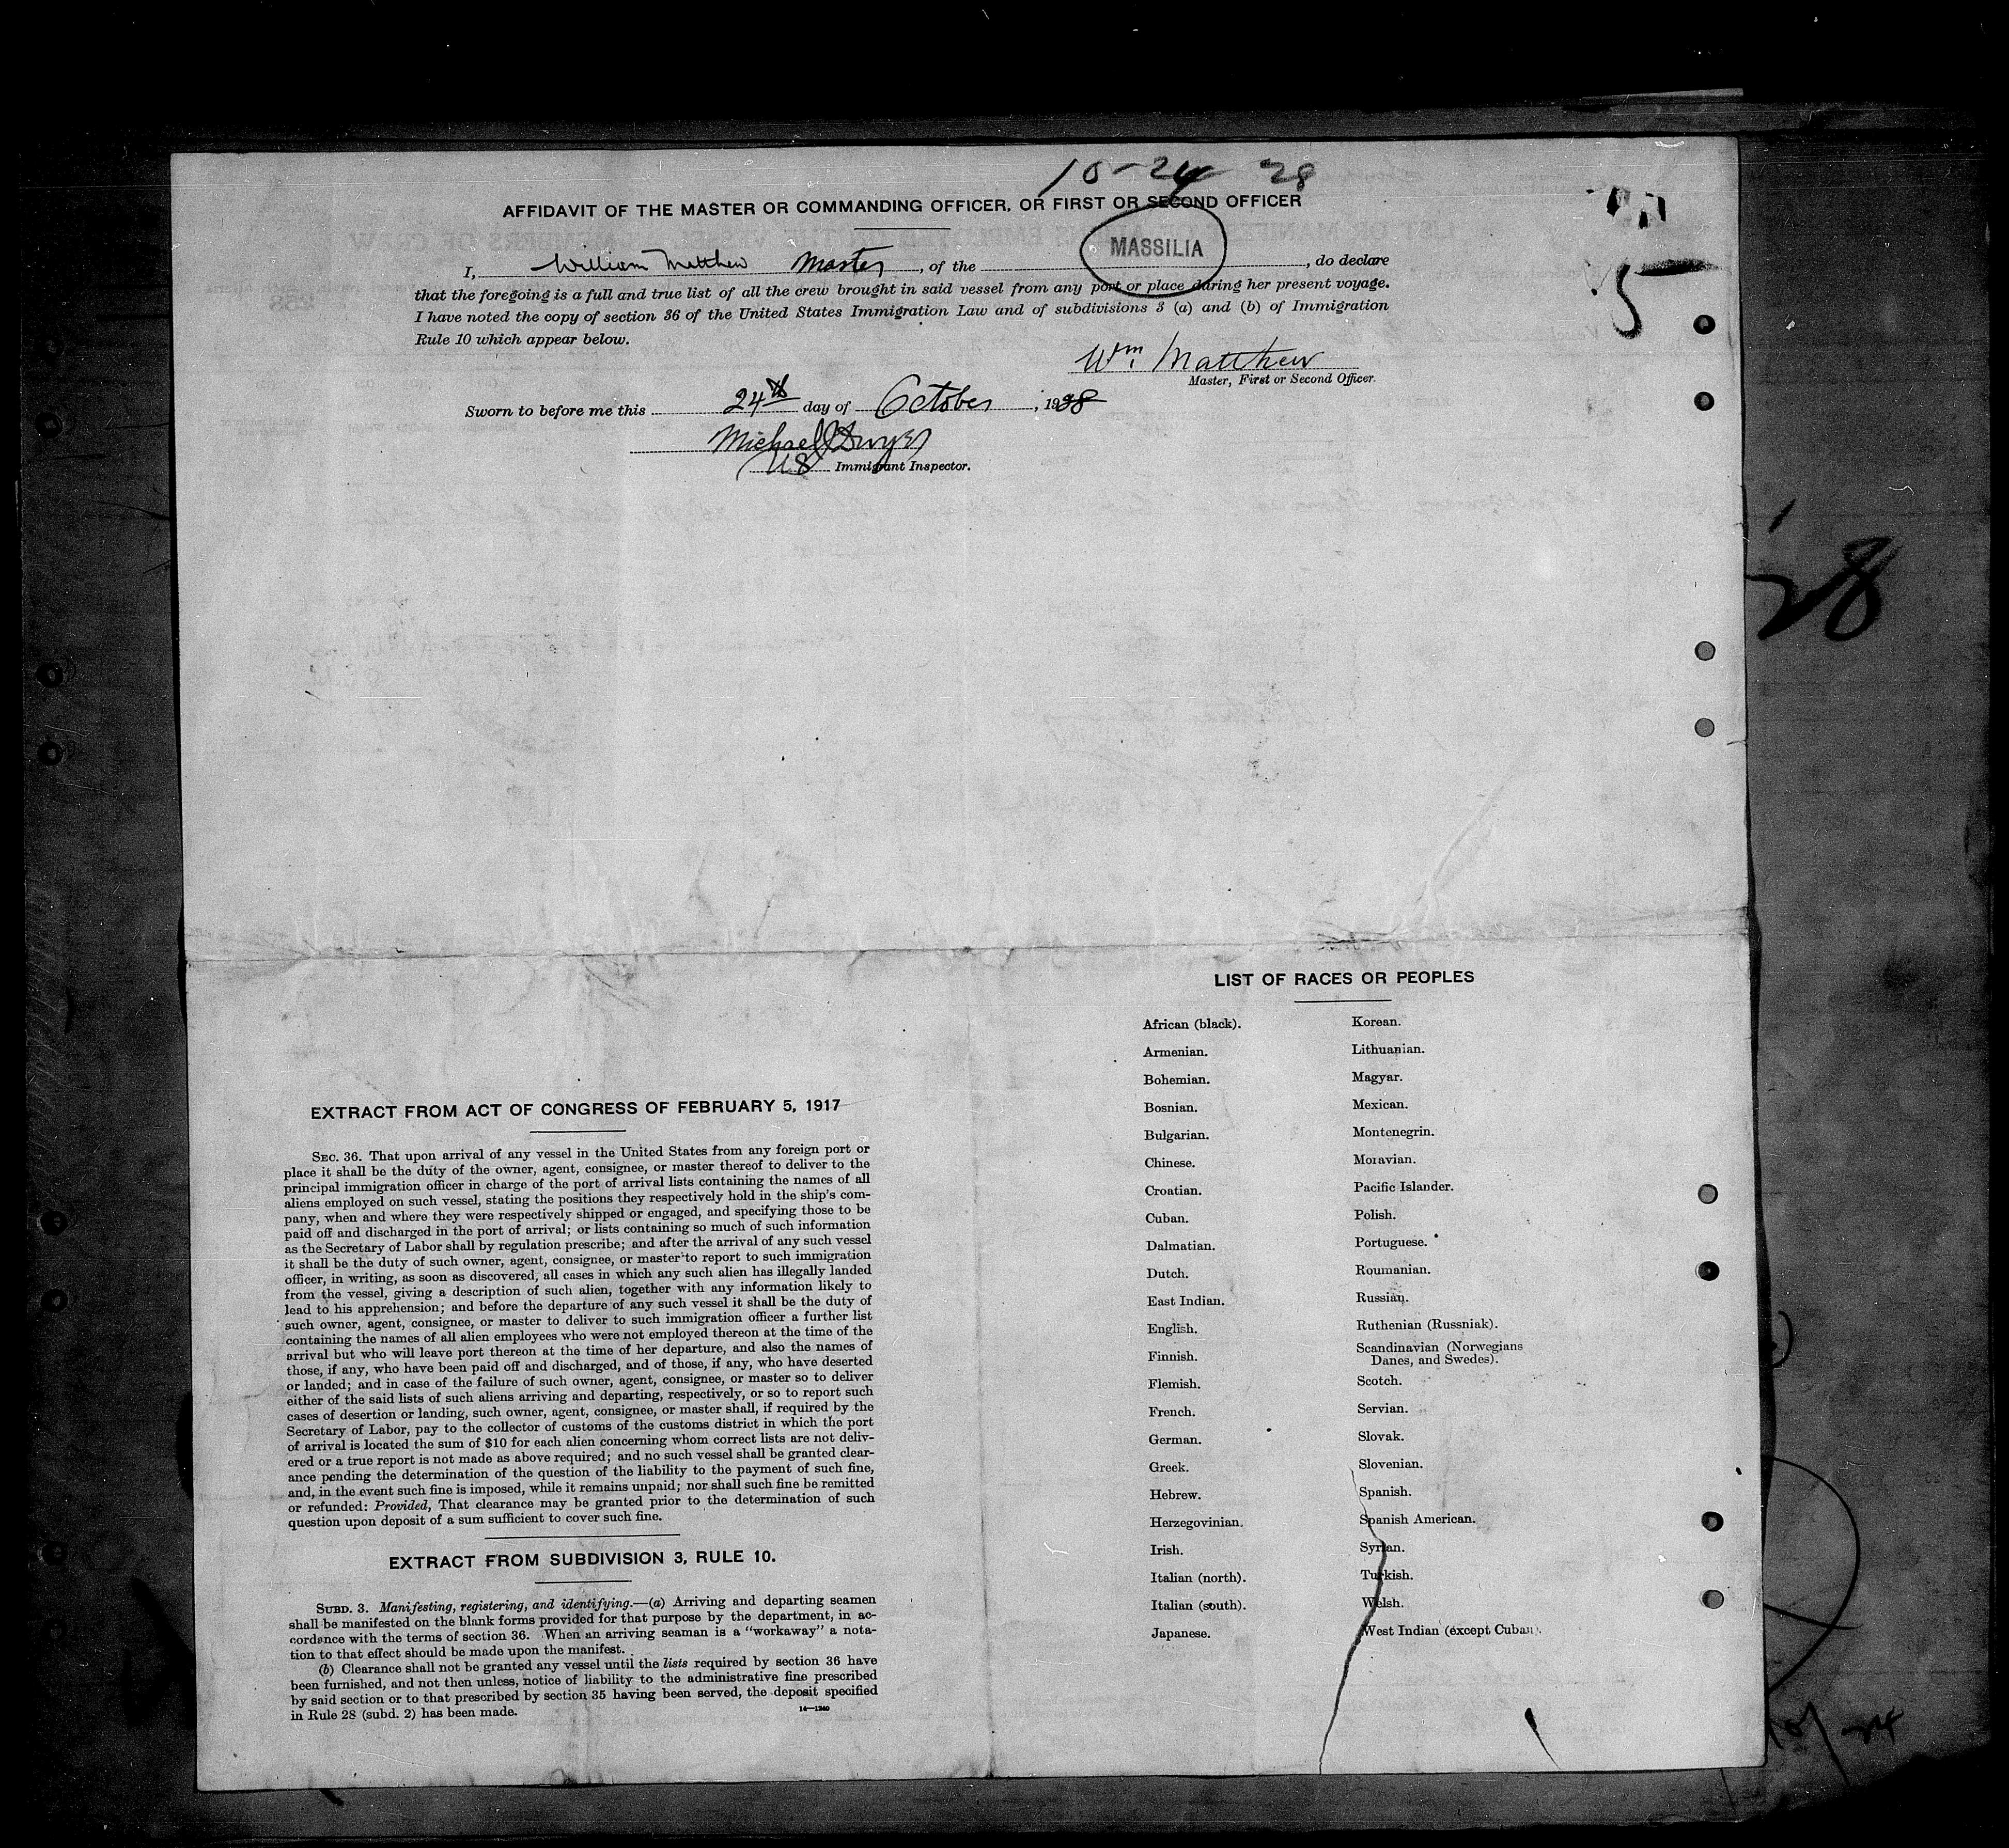 10-24 28
AFFIDAVIT OF THE MASTER OR COMMANDING OFFICER, OR FIRST OR SECOND OFFICER
I, William Matthew Master, of the MASSILIA, do declare
that the foregoing is a full and true list of all the crew brought in said vessel from any port or place during her present voyage.
I have noted the copy of section 36 of the United States Immigration Law and of subdivisions 3 (a) and (b) of Immigration
Rule 10 which appear below.
5
Wm. Matthew
Master, First or Second Officer.
Sworn to before me this 24th day of October, 1928
Michael J Dwyer
US Immigrant Inspector.
28
EXTRACT FROM ACT OF CONGRESS OF FEBRUARY 5, 1917
SEC. 36. That upon arrival of any vessel in the United States from any foreign port or
place it shall be the duty of the owner, agent, consignee, or master thereof to deliver to the
principal immigration officer in charge of the port of arrival lists containing the names of all
aliens employed on such vessel, stating the positions they respectively hold in the ship's com-
pany, when and where they were respectively shipped or engaged, and specifying those to be
paid off and discharged in the port of arrival; or lists containing so much of such information
as the Secretary of Labor shall by regulation prescribe; and after the arrival of any such vessel
it shall be the duty of such owner, agent, consignee, or master to report to such immigration
officer, in writing, as soon as discovered, all cases in which any such alien has illegally landed
from the vessel, giving a description of such alien, together with any information likely to
lead to his apprehension; and before the departure of any such vessel it shall be the duty of
such owner, agent, consignee, or master to deliver to such immigration officer a further list
containing the names of all alien employees who were not employed thereon at the time of the
arrival but who will leave port thereon at the time of her departure, and also the names of
those, if any, who have been paid off and discharged, and of those, if any, who have deserted
or landed; and in case of the failure of such owner, agent, consignee, or master so to deliver
either of the said lists of such aliens arriving and departing, respectively, or so to report such
cases of desertion or landing, such owner, agent, consignee, or master shall, if required by the
Secretary of Labor, pay to the collector of customs of the customs district in which the port
of arrival is located the sum of $10 for each alien concerning whom correct lists are not deliv-
ered or a true report is not made as above required; and no such vessel shall be granted clear-
ance pending the determination of the question of the liability to the payment of such fine,
and, in the event such fine is imposed, while it remains unpaid; nor shall such fine be remitted
or refunded: Provided, That clearance may be granted prior to the determination of such
question upon deposit of a sum sufficient to cover such fine.
EXTRACT FROM SUBDIVISION 3, RULE 10.
SUBD. 3. Manifesting, registering, and identifying.—(a) Arriving and departing seamen
shall be manifested on the blank forms provided for that purpose by the department, in ac-
cordance with the terms of section 36. When an arriving seaman is a "workaway" a nota-
tion to that effect should be made upon the manifest.
(b) Clearance shall not be granted any vessel until the lists required by section 36 have
been furnished, and not then unless, notice of liability to the administrative fine prescribed
by said section or to that prescribed by section 35 having been served, the deposit specified
in Rule 28 (subd. 2) has been made.
14—1240
LIST OF RACES OR PEOPLES
African (black).
Armenian.
Bohemian.
Bosnian.
Bulgarian.
Chinese.
Croatian.
Cuban.
Dalmatian.
Dutch.
East Indian.
English.
Finnish.
Flemish.
French.
German.
Greek.
Hebrew.
Herzegovinian.
Irish.
Italian (north).
Italian (south).
Japanese.
Korean.
Lithuanian.
Magyar.
Mexican.
Montenegrin.
Moravian.
Pacific Islander.
Polish.
Portuguese.
Roumanian.
Russian.
Ruthenian (Russniak).
Scandinavian (Norwegians
Danes, and Swedes).
Scotch.
Servian.
Slovak.
Slovenian.
Spanish.
Spanish American.
Syrian.
Turkish.
Welsh.
West Indian (except Cuban).